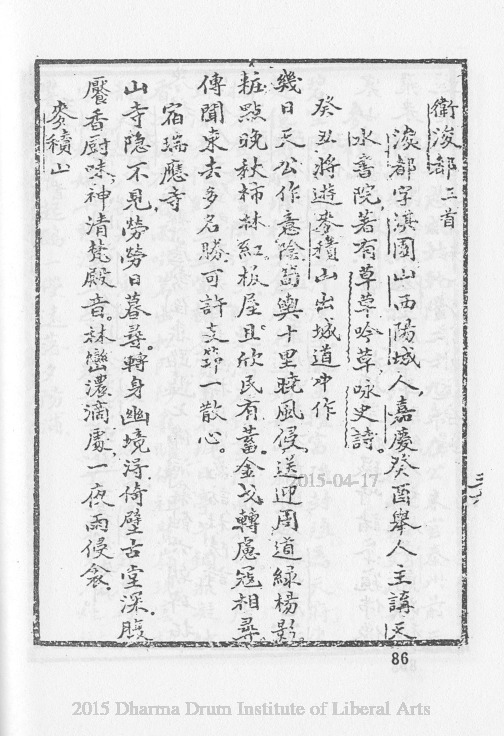 衛浚都三首
浚都字淇園山西陽城人嘉慶癸酉舉人主講天
水書院著有草草吟草詠史詩。
癸丑將遊麥積山出城道中作
幾日天公作意陰筍輿十里曉風侵送迎周道綠楊影
粧點晚秋柿林紅板屋且欣民有蓄。金戈轉慮寇相尋
傳聞東去多名勝可許支笻一散心。
宿瑞應寺
山寺隱不見勞勞日暮尋。轉身幽境得倚壁古堂深腹
饜香厨味神清梵殿音。林巒濃滴處一夜雨侵衾。
麥積山
86
2015-04-17
2015 Dharma Drum Institute of Liberal Arts